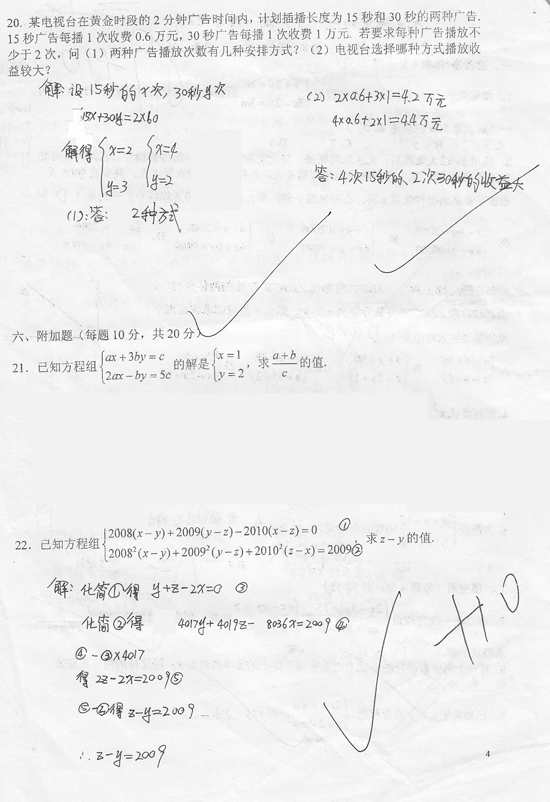 20. 某电视台在黄金时段的 2 分钟广告时间内，计划插播长度为 15 秒和 30 秒的两种广告.
15 秒广告每播 1 次收费 0.6 万元, 30 秒广告每播 1 次收费 1 万元. 若要求每种广告播放不
少于 2 次，问（1）两种广告播放次数有几种安排方式？（2）电视台选择哪种方式播放收
益较大？
解: 设15秒的x次, 30秒y次
15x+30y=2×60
解得 {x=2 {x=4
y=3 y=2
(1): 答: 2种方式
(2) 2×0.6+3×1=4.2 万元
4×0.6+2×1=4.4万元
答: 4次15秒的、2次30秒的收益大
六、附加题（每题 10 分，共 20 分）
21．已知方程组{ax+3by=c 2ax-by=5c 的解是{x=1 y=2，求 (a+b)/c 的值.
22．已知方程组{2008(x-y)+2009(y-z)-2010(x-z)=0 ①
2008²(x-y)+2009²(y-z)+2010²(z-x)=2009②，求 z-y 的值.
解: 化简①得 y+z-2x=0 ③
化简②得 4017y+4019z-8036x=2009 ④
④-③×4017
得 2z-2x=2009⑤
⑤-③得z-y=2009
∴z-y=2009
+10
4